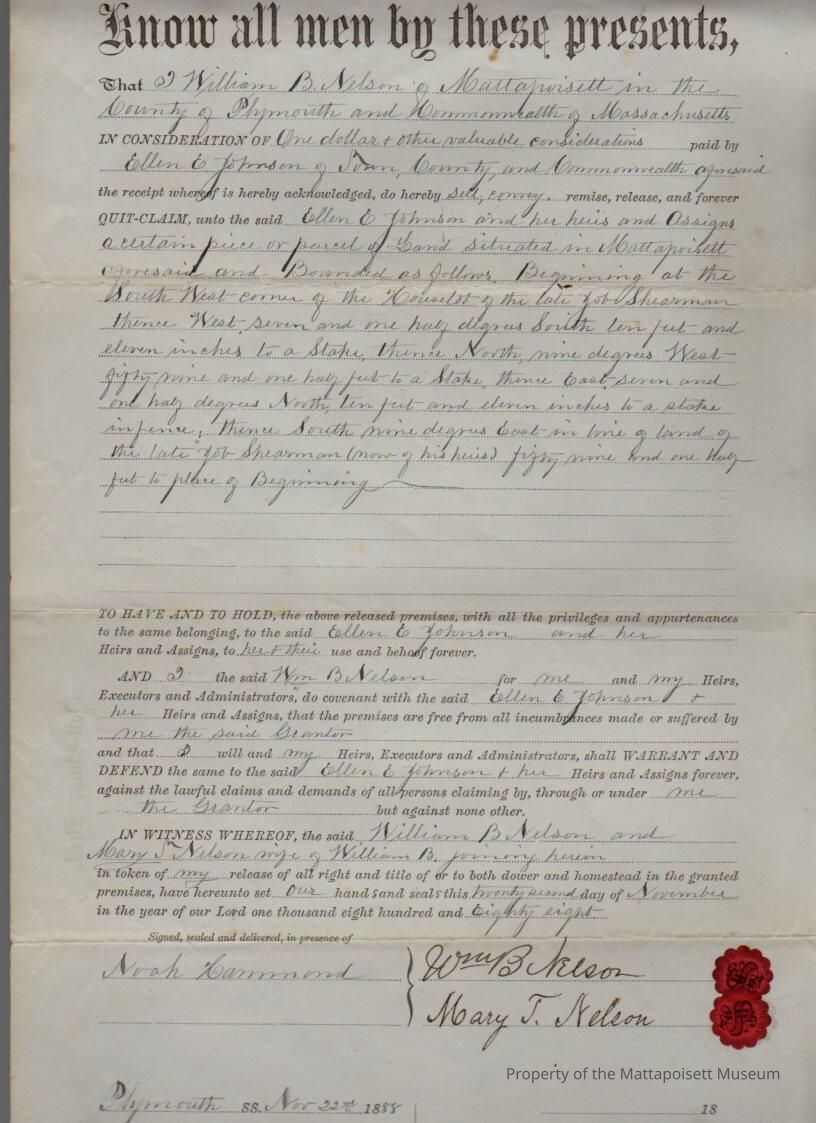 Know all men by these presents,
That I William B. Nelson of Mattapoisett in the
County of Plymouth and Commonwealth of Massachusetts
IN CONSIDERATION OF One dollar & other valuable considerations paid by
Ellen E Johnson of Town, County, and Commonwealth aforesaid
the receipt whereof is hereby acknowledged, do hereby sell, convey, remise, release, and forever
QUIT-CLAIM, unto the said Ellen E Johnson and her heirs and Assigns
a certain piece or parcel of Land situated in Mattapoisett
aforesaid and Bounded as follows, Beginning at the
South West corner of the Houselot of the late Job Shearman
thence West, seven and one half degrees South ten feet and
eleven inches to a Stake, thence North, nine degrees West
fifty nine and one half feet to a Stake, thence East, seven and
one half degrees North, ten feet and eleven inches to a stake
in fence, thence South nine degrees East in line of land of
the late Job Shearman (now of his heirs) fifty nine and one half
feet to place of Beginning
TO HAVE AND TO HOLD, the above released premises, with all the privileges and appurtenances
to the same belonging, to the said Ellen E Johnson and her
Heirs and Assigns, to her & their use and behoof forever.
AND I the said Wm B Nelson for me and my Heirs,
Executors and Administrators, do covenant with the said Ellen E Johnson &
her Heirs and Assigns, that the premises are free from all incumbrances made or suffered by
me the said Grantor
and that I will and my Heirs, Executors and Administrators, shall WARRANT AND
DEFEND the same to the said Ellen E Johnson & her Heirs and Assigns forever,
against the lawful claims and demands of all persons claiming by, through or under me
the Grantor but against none other.
IN WITNESS WHEREOF, the said William B Nelson and
Mary T Nelson wife of William B. joining herein
in token of my release of all right and title of or to both dower and homestead in the granted
premises, have hereunto set our hands and seals this twenty second day of November
in the year of our Lord one thousand eight hundred and Eighty eight.
Signed, sealed and delivered, in presence of
Noah Hammond Wm B Nelson
Mary T. Nelson
Property of the Mattapoisett Museum
Plymouth SS. Nov 22nd 1888 18